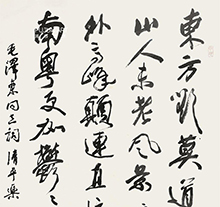 東方莫道
山人未老風景
外高峰顛連直接
南粤更加鬱
毛澤東同志詞清平樂